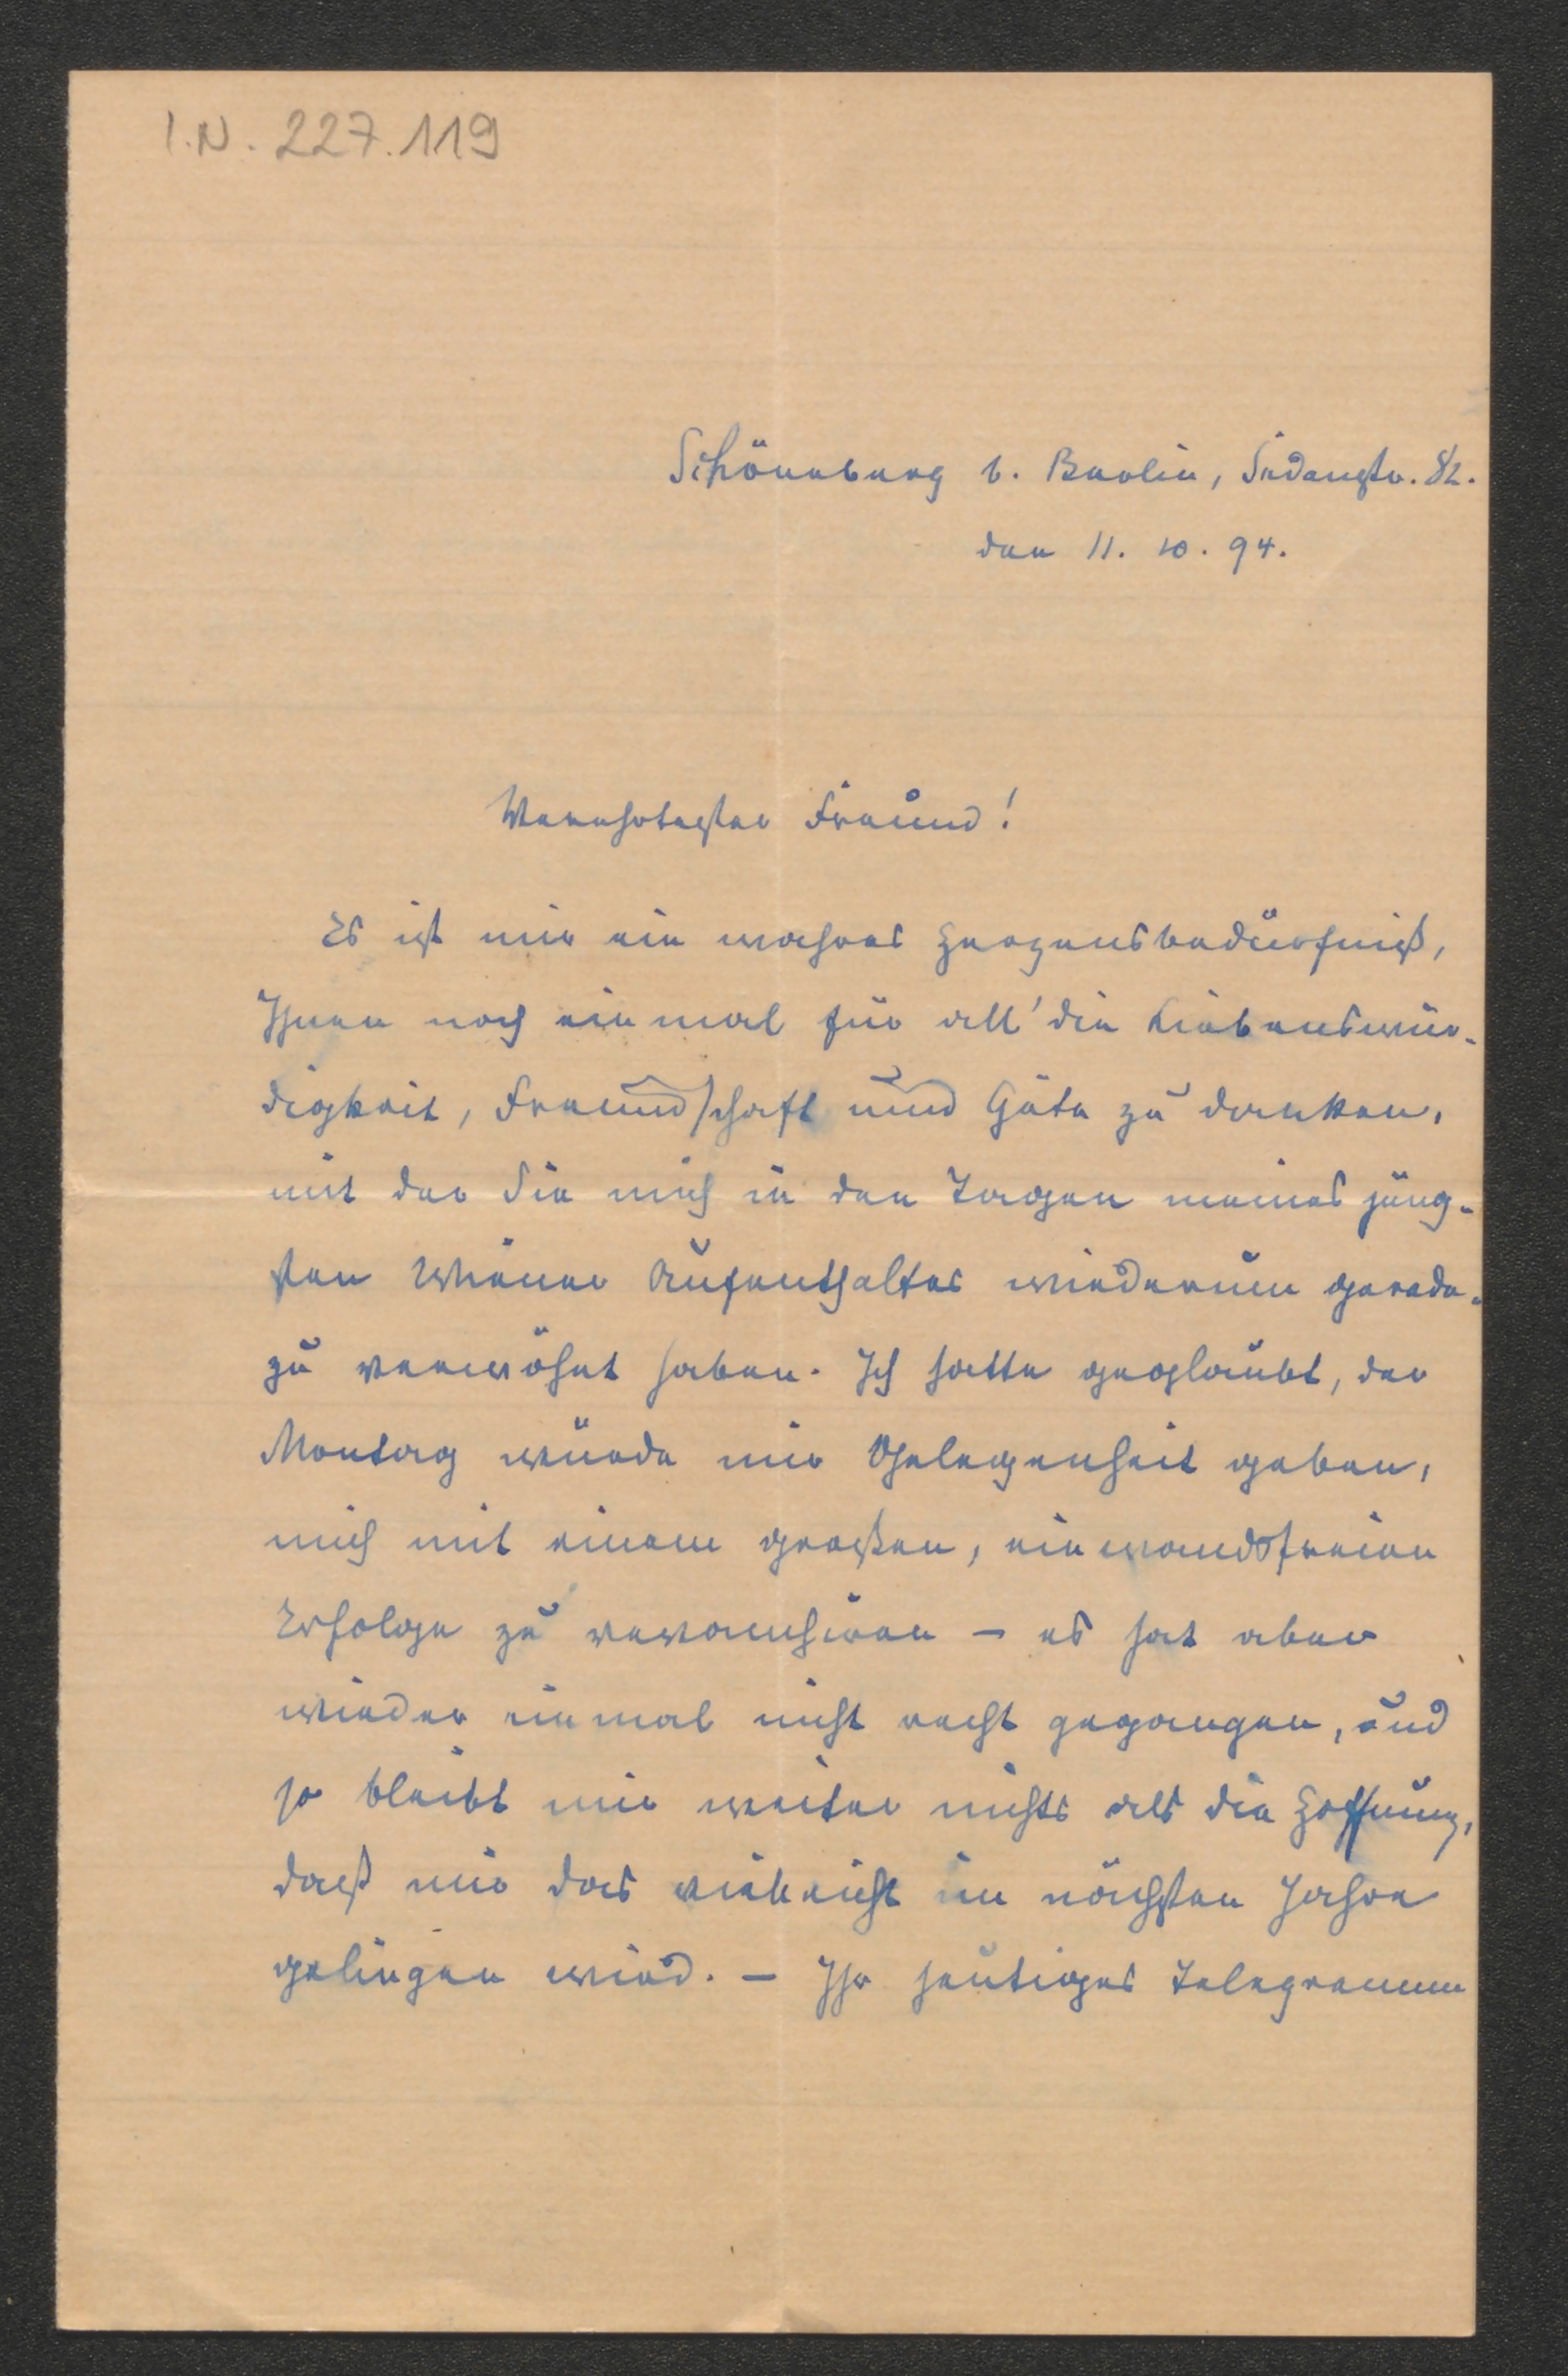 I.N. 227.119
Schöneberg b. Berlin, Sedanstr. 82.
den 11. 10. 94.
Verehrtester Freund!
Es ist mir ein wahres Herzensbedürfniß,
Ihnen noch einmal für all' die Liebenswür-
digkeit, Freundschaft und Güte zu danken,
mit der Sie mich in den Tagen meines jüng-
sten Wiener Aufenthaltes wiederum gerade-
zu verwöhnt haben. Ich hatte geglaubt, der
Montag würde mir Gelegenheit geben,
mich mit einem großen, einwandsfreien
Erfolge zu revanchiren – es hat aber
wieder einmal nicht recht gegangen, und
so bleibt mir weiter nichts als die Hoffnung,
daß mir das vielleicht im nächsten Jahre
gelingen wird. – Ihr heutiges Telegramm